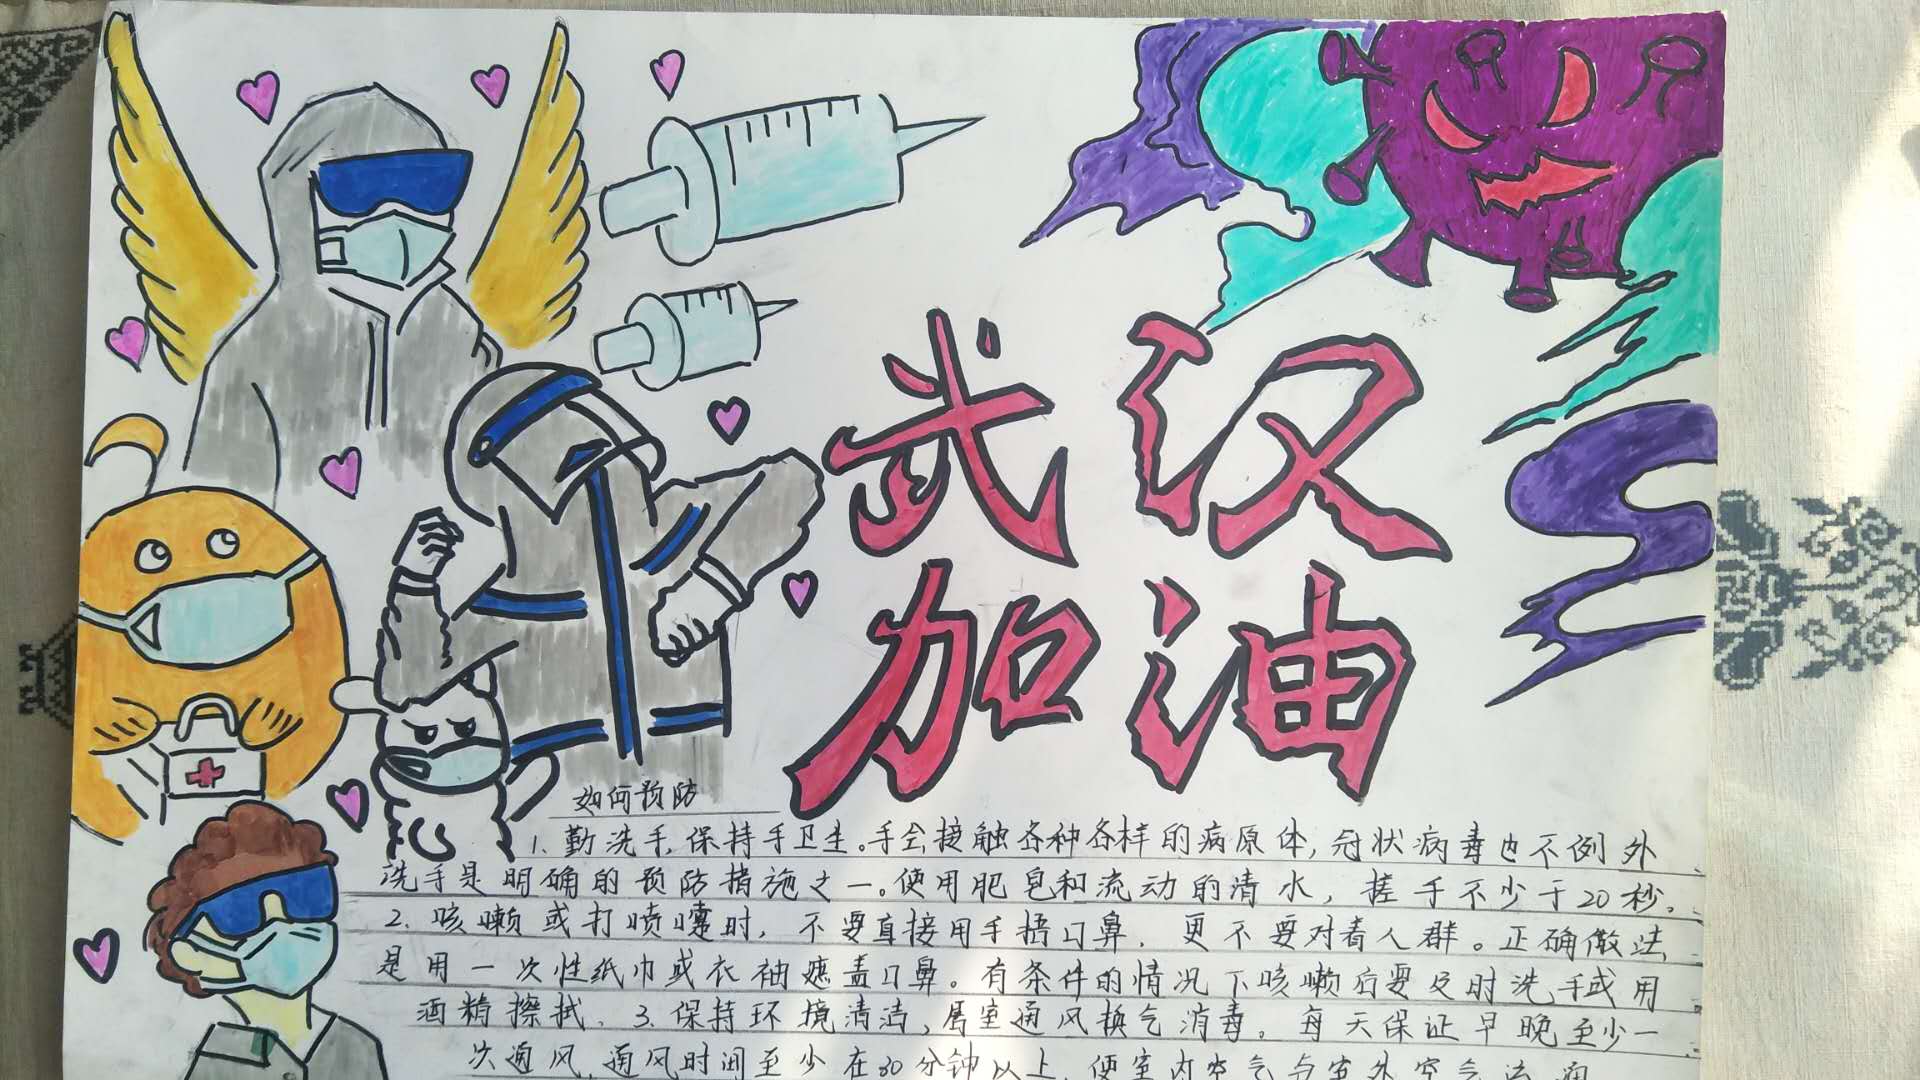 武汉
加油
如何预防
1. 勤洗手,保持手卫生。手会接触各种各样的病原体,冠状病毒也不例外
洗手是明确的预防措施之一。使用肥皂和流动的清水,搓手不少于20秒。
2. 咳嗽或打喷嚏时,不要直接用手捂口鼻,更不要对着人群。正确做法
是用一次性纸巾或衣袖遮盖口鼻。有条件的情况下咳嗽后要及时洗手或用
酒精擦拭、3.保持环境清洁,居室通风换气消毒。每天保证早晚至少一
次通风,通风时间至少在30分钟以上,使室内空气与室外空气